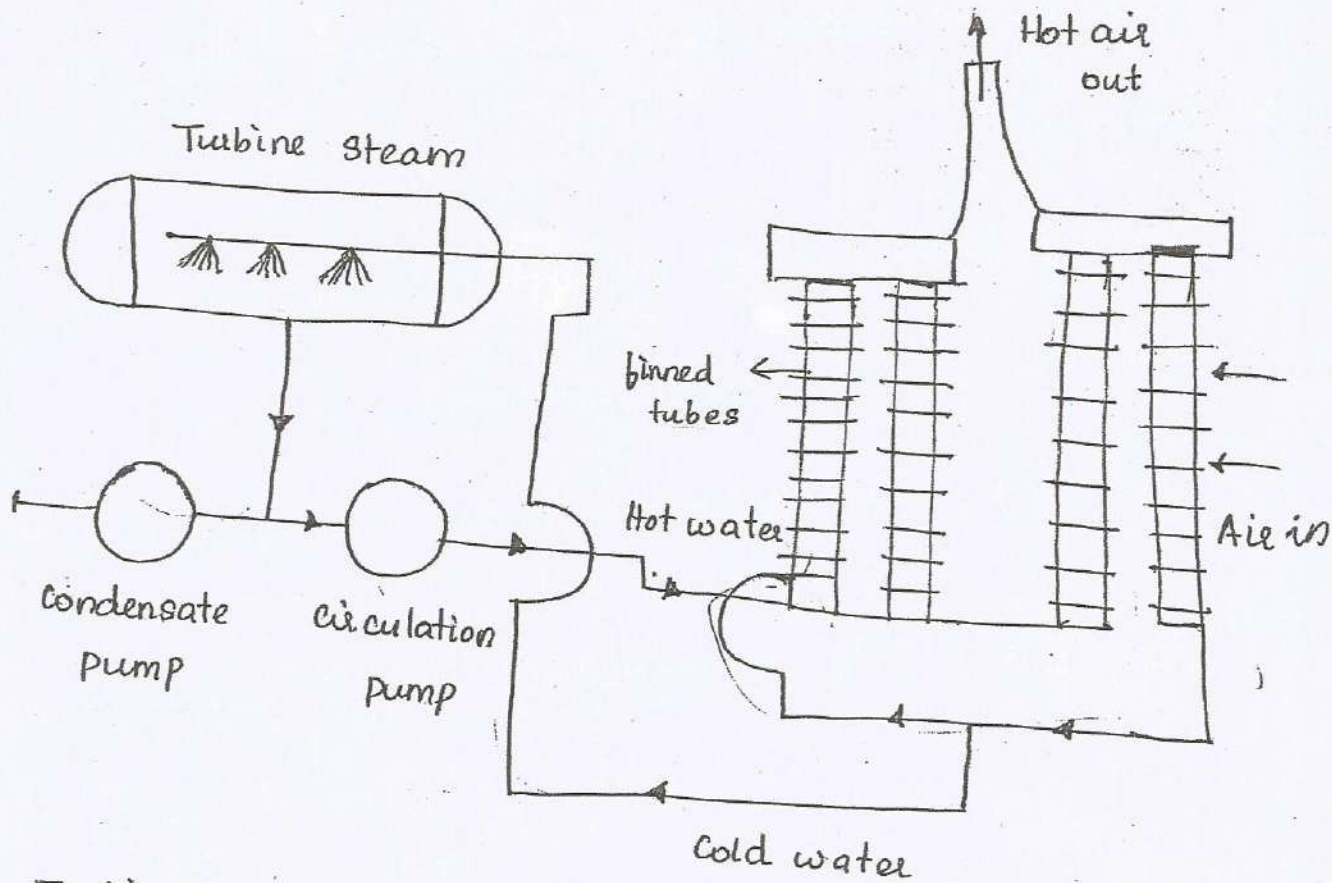 Hot air
out
Turbine steam
finned
tubes
Hot water
Air in
Condensate
pump
Circulation
pump
Cold water